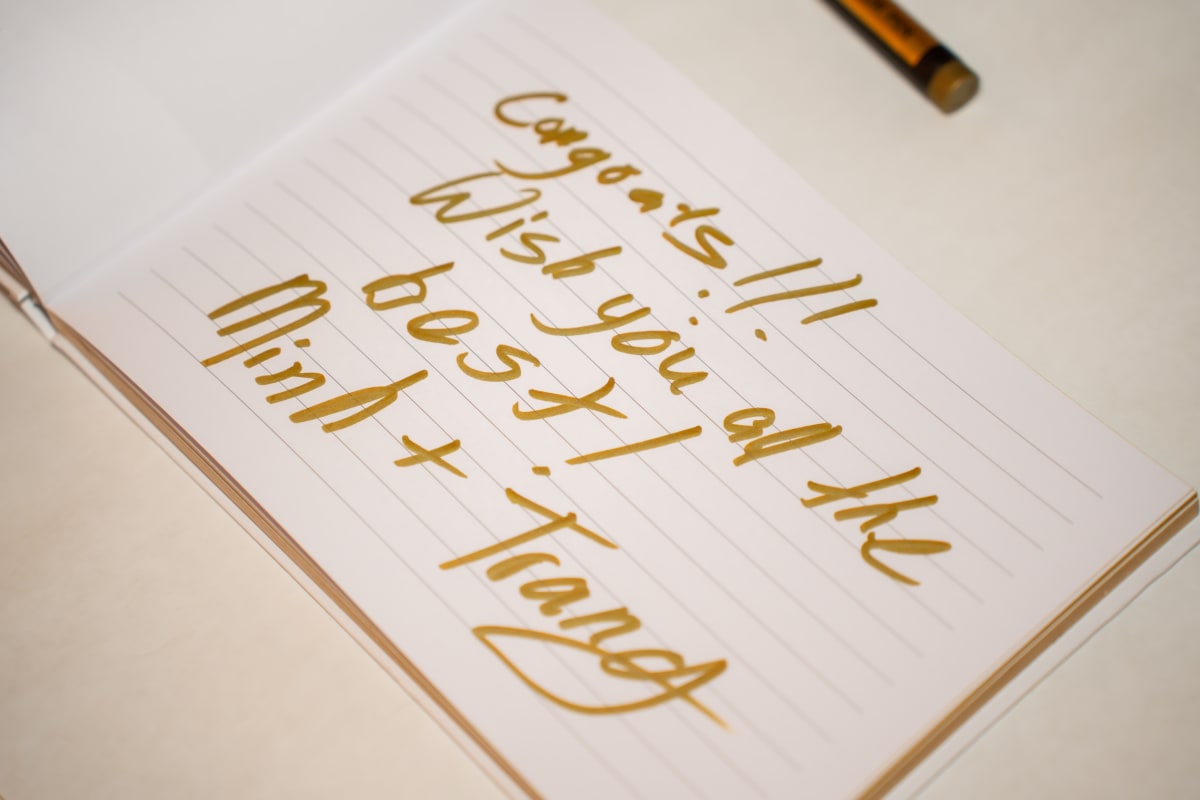 Congrats!!!
Wish you all the
best!
Minh + Trang